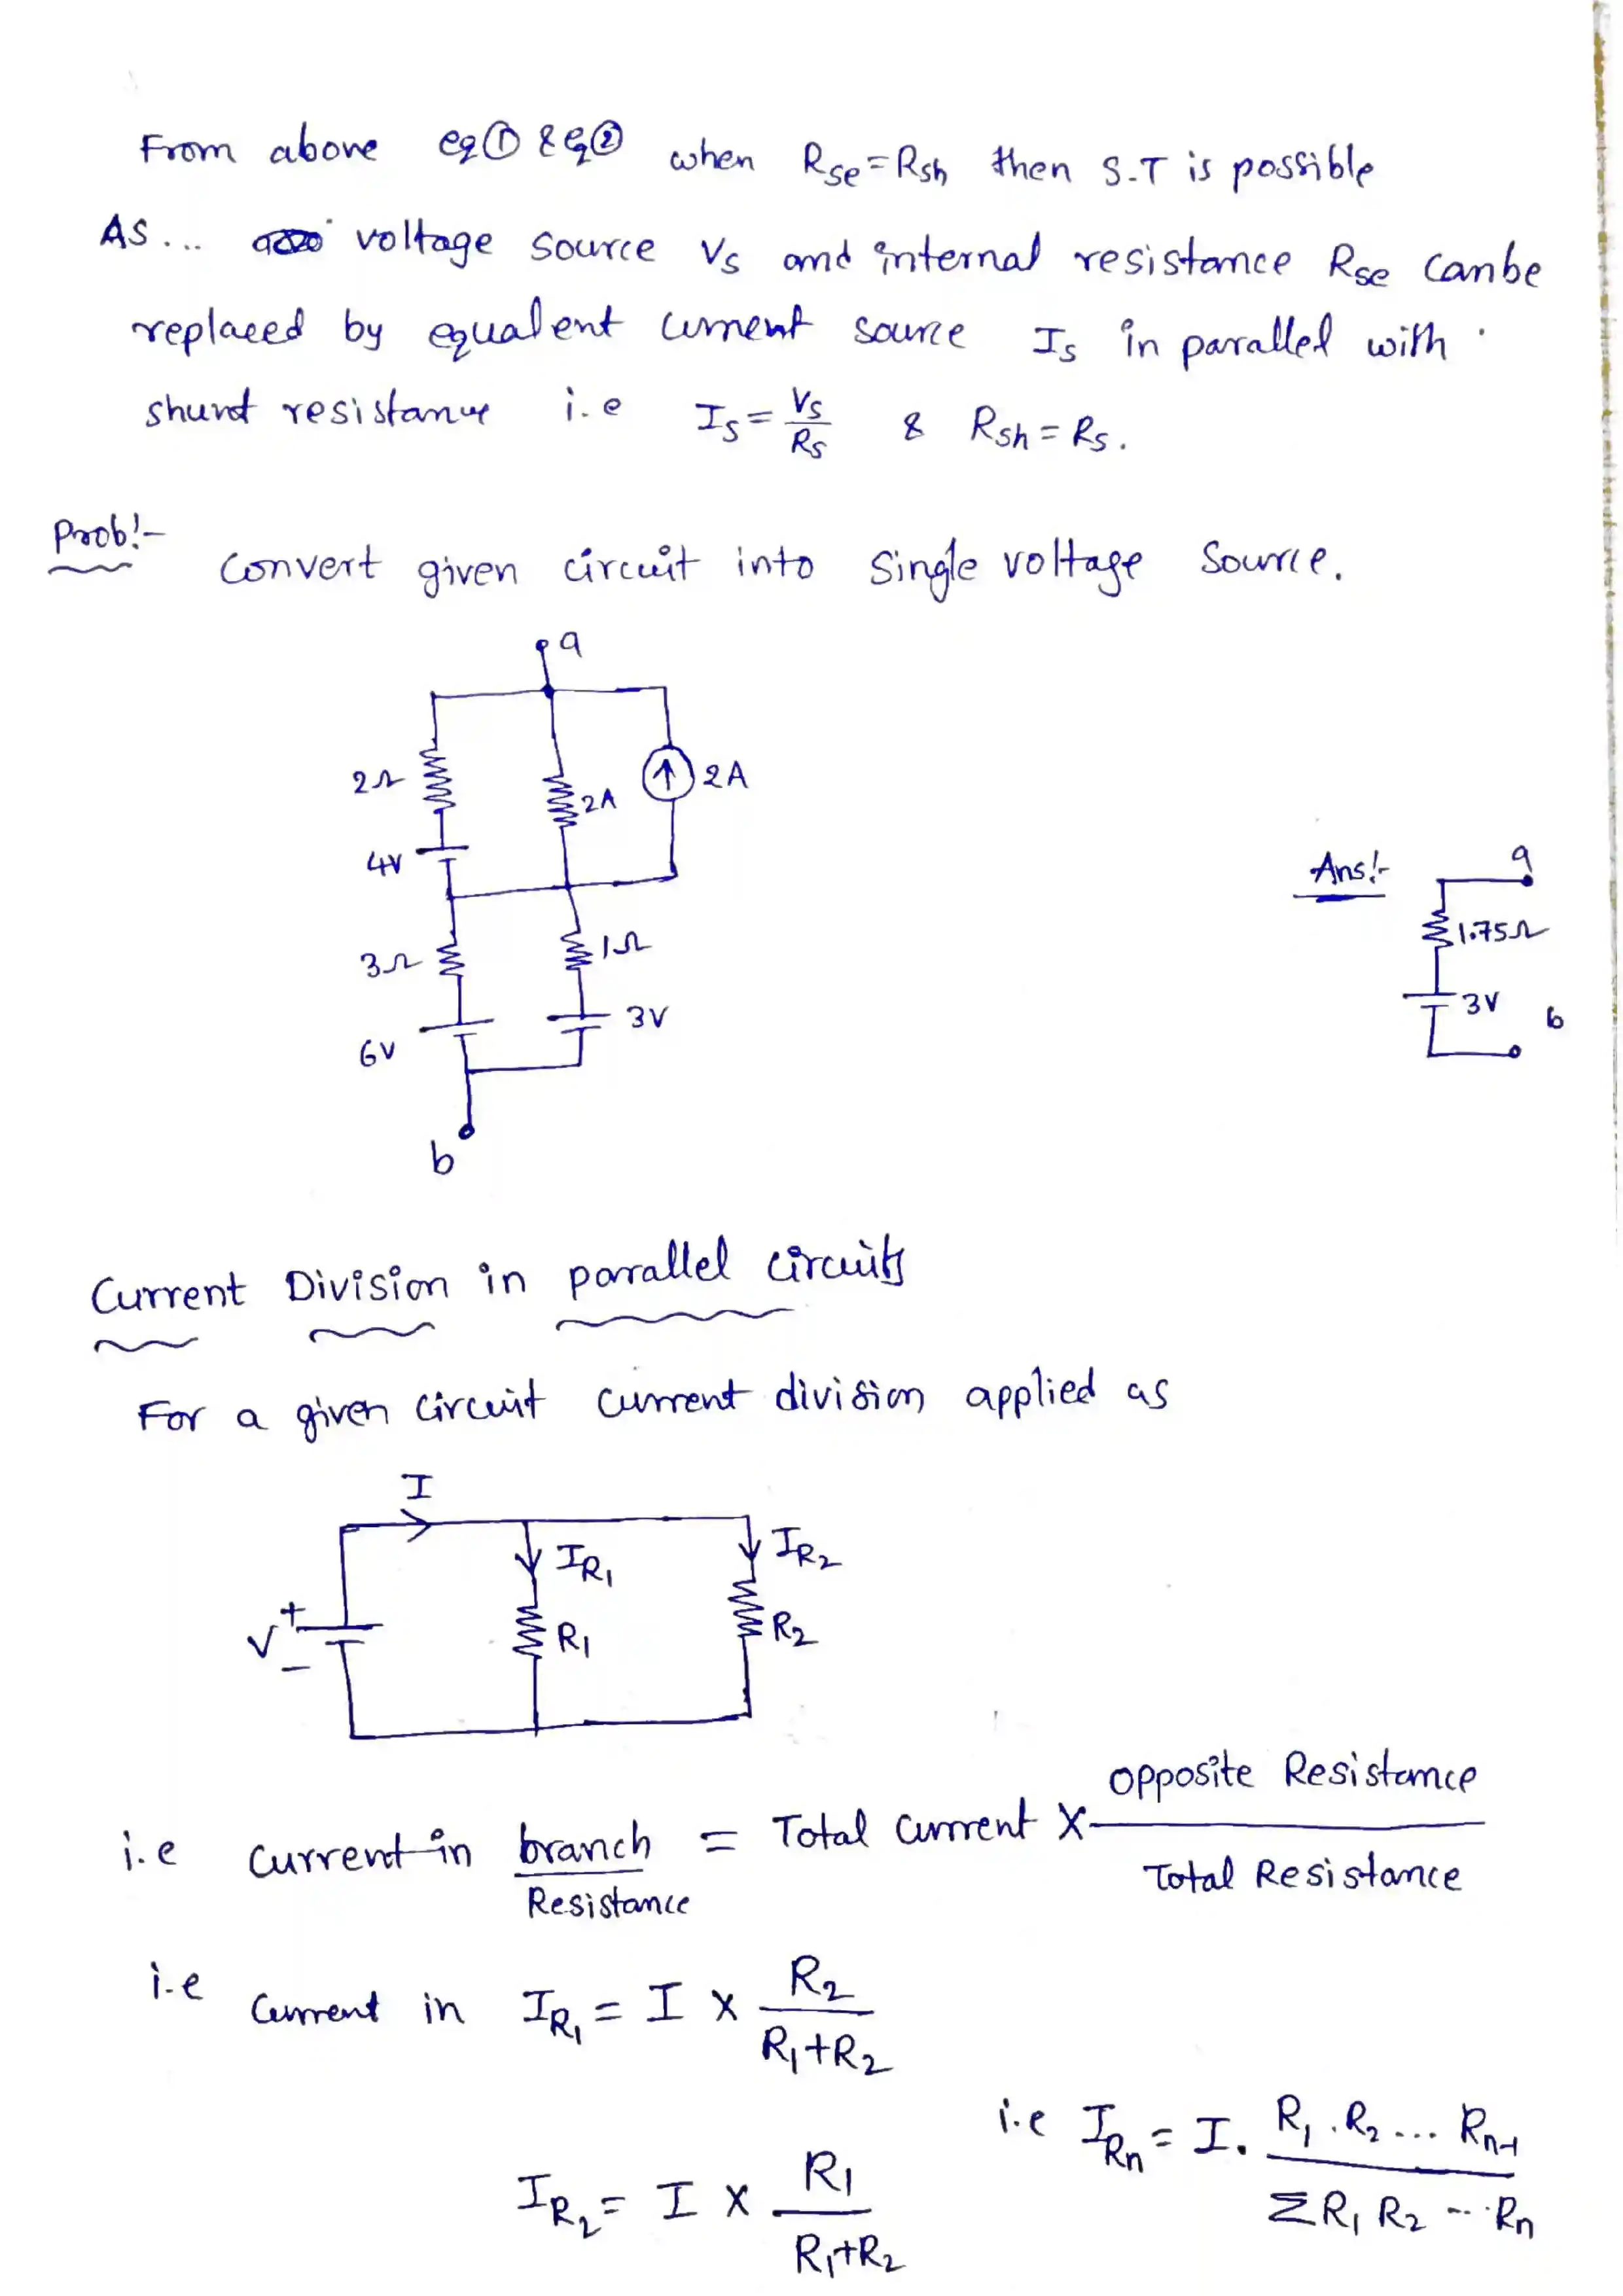 From above eq① & eq② when Rse = Rsh then S.T is possible
As ... voltage source Vs and internal resistance Rse canbe
replaced by equalent current source Is in parallel with
shunt resistance i.e Is = Vs/Rs & Rsh = Rs.
Prob:-
Convert given circuit into single voltage source.
a
2Ω
2A
2A
4V
Ans:-
a
1.75Ω
3V
b
3Ω
1Ω
3V
6V
b
Current Division in parallel circuits
For a given circuit current division applied as
I
IR1
IR2
V + −
R1
R2
i.e current in branch Resistance = Total current X opposite Resistance / Total Resistance
i.e current in IR1 = I X R2/R1+R2
IR2 = I X R1/R1+R2
i.e IRn = I. R1.R2...Rn-1/ΣR1 R2 ... Rn